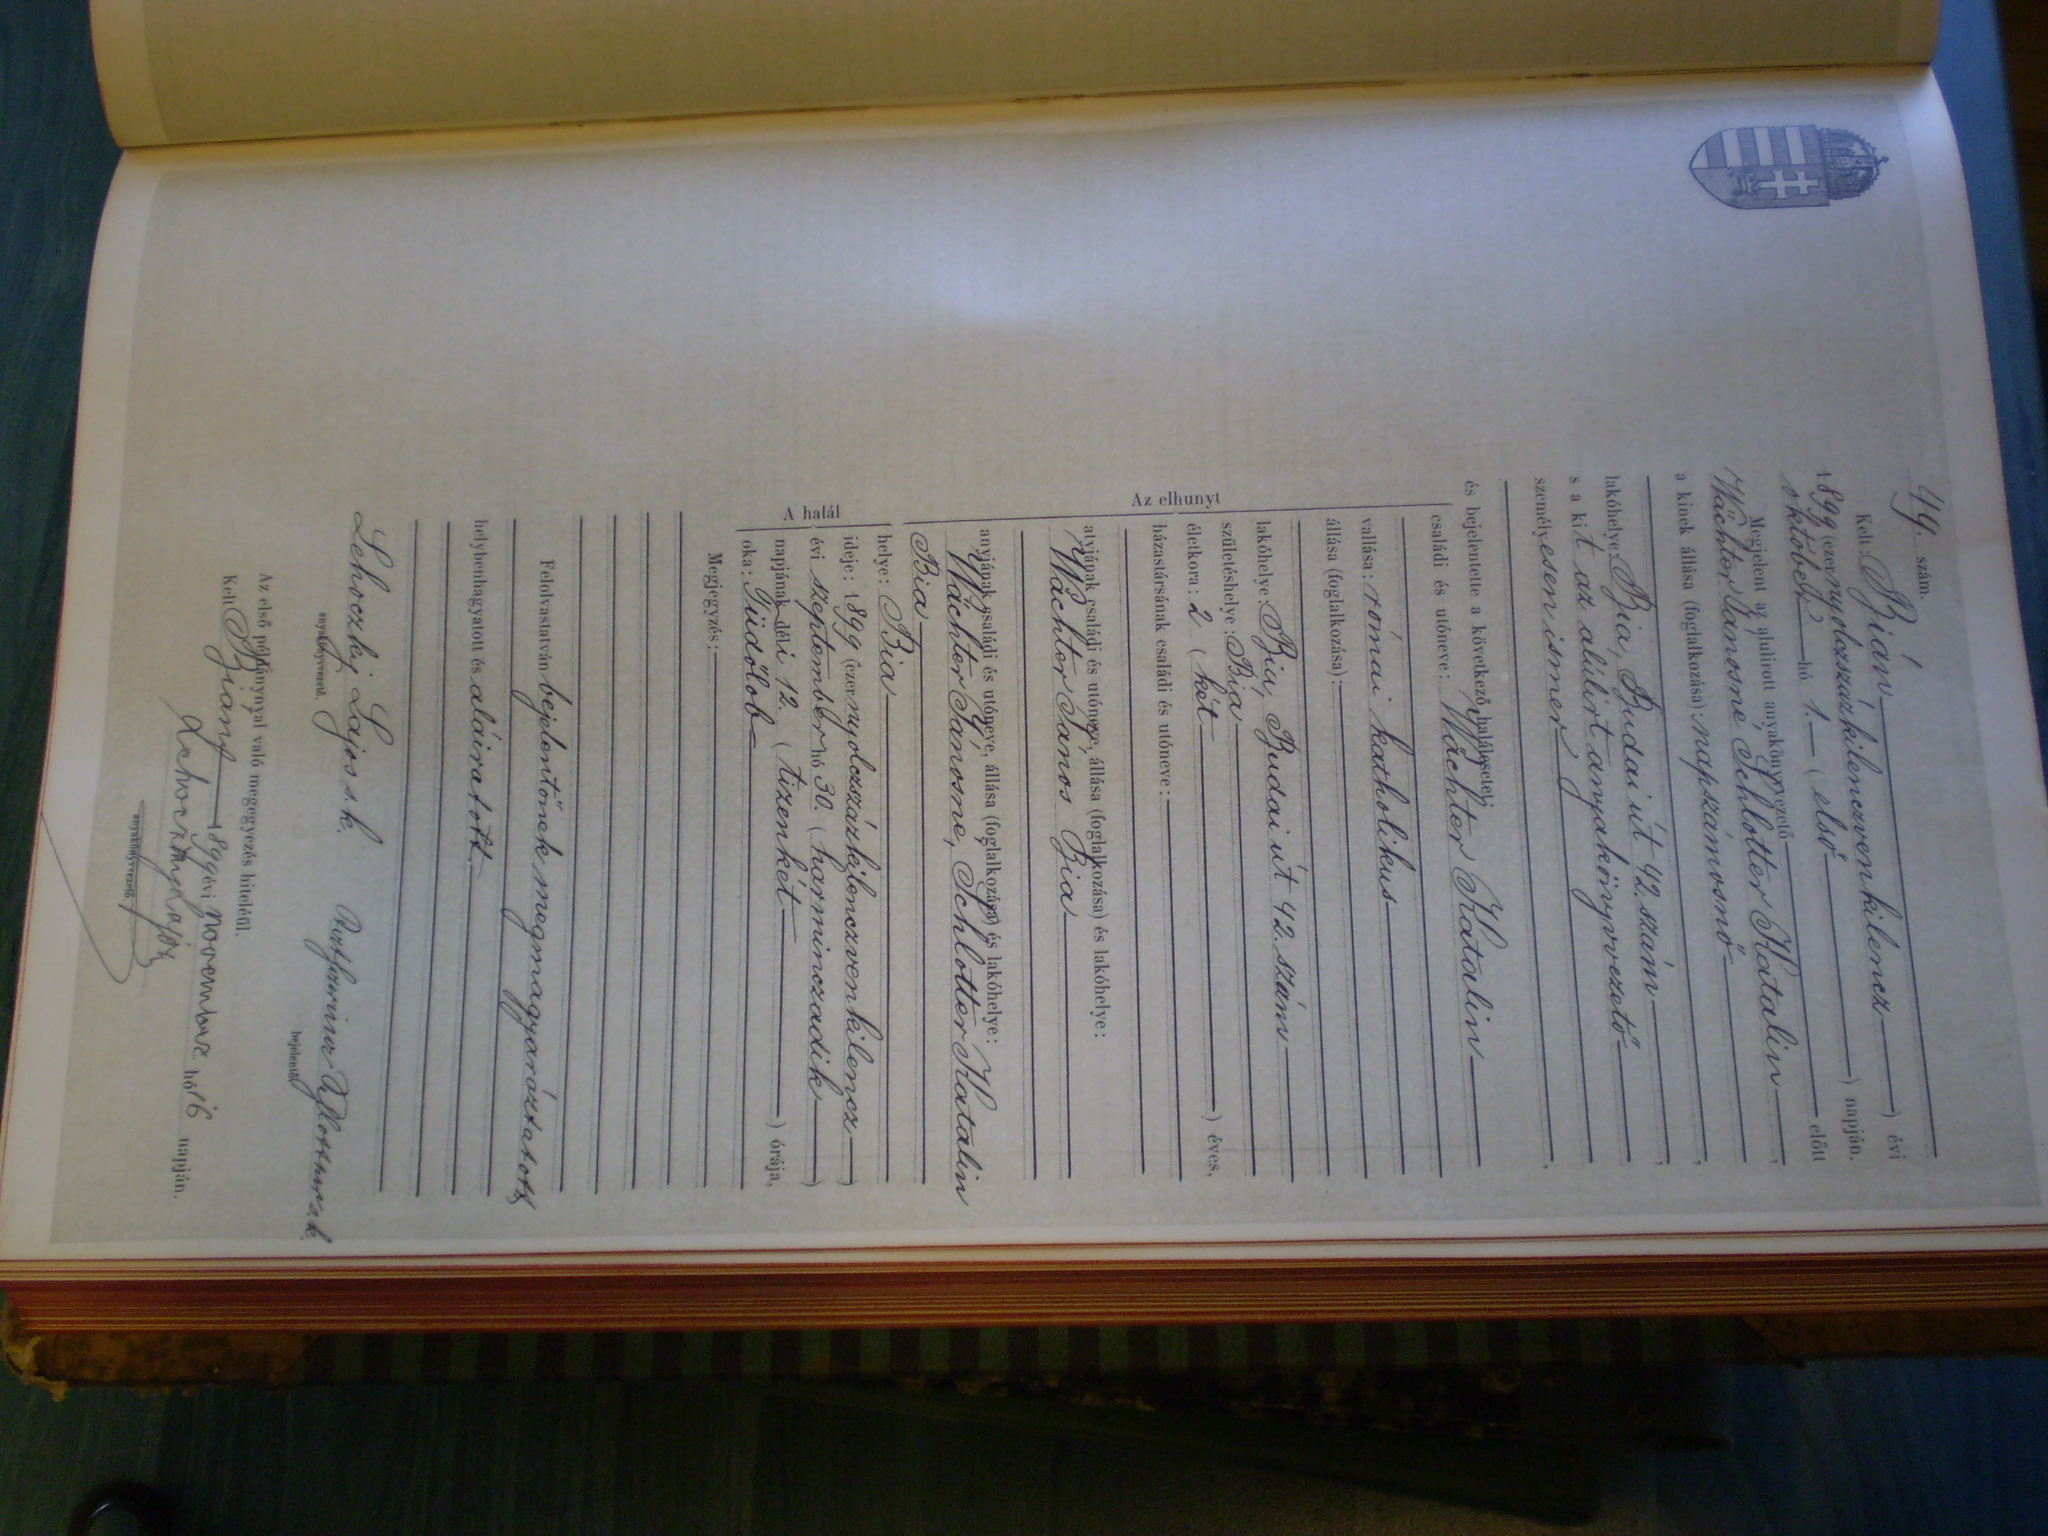 49. szám.
Kelt: Bián
1899 (ezer nyolczszázkilenczvenkilencz) évi
október hó 1. (első) napján.
Megjelent az alulirott anyakönyvvezető előtt
Wächter Jánosné Schlotter Katalin,
a kinek állása (foglalkozása): napszámosnő,
lakóhelye: Bia, Budai út 42. szám,
s a kit az alúlirt anyakönyvvezető
személyesen ismer,
és bejelentette a következő halálesetet:
Az elhunyt
családi és utóneve: Wächter Katalin
vallása: római katholikus
állása (foglalkozása):
lakóhelye: Bia, Budai út 42. szám
születéshelye: Bia
életkora: 2 (két) éves,
házastársának családi és utóneve:
atyjának családi és utóneve, állása (foglalkozása) és lakóhelye:
Wächter János Bia
anyjának családi és utóneve, állása (foglalkozása) és lakóhelye:
Wächter Jánosné, Schlotter Katalin
Bia
A halál
helye: Bia
ideje: 1899 (ezer nyolczszázkilenczvenkilencz)
évi szeptember hó 30. (harminczadik)
napjának déli 12. (tizenkét) órája,
oka: Tüdőlob
Megjegyzés:
Felolvastatván bejelentőnek megmagyaráztatott,
helybenhagyatott és aláiratott.
Lehoczky Lajos s.k.
anyakönyvvezető.
bejelentő
Az első példánynyal való megegyezés hiteléül.
Kelt Bián, 1899 évi november hó 16 napján.
Lehoczky Lajos
anyakönyvvezető.